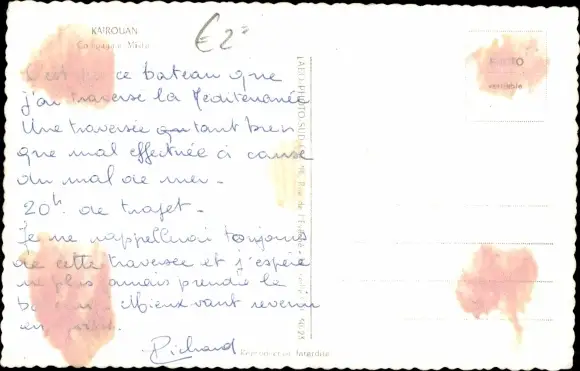 KAIROUAN
Compagnie Mixte
€ 2
C'est sur ce bateau que
j'ai traversé la Méditerranée
Une traversée autant bien
que mal effectuée à cause
du mal de mer.
20h. de trajet.
Je me rappellerai toujours
de cette traversée et j'espère
ne plus jamais prendre le
Mieux vaut revenir
Richard
PHOTO
véritable
Reproduction Interdite